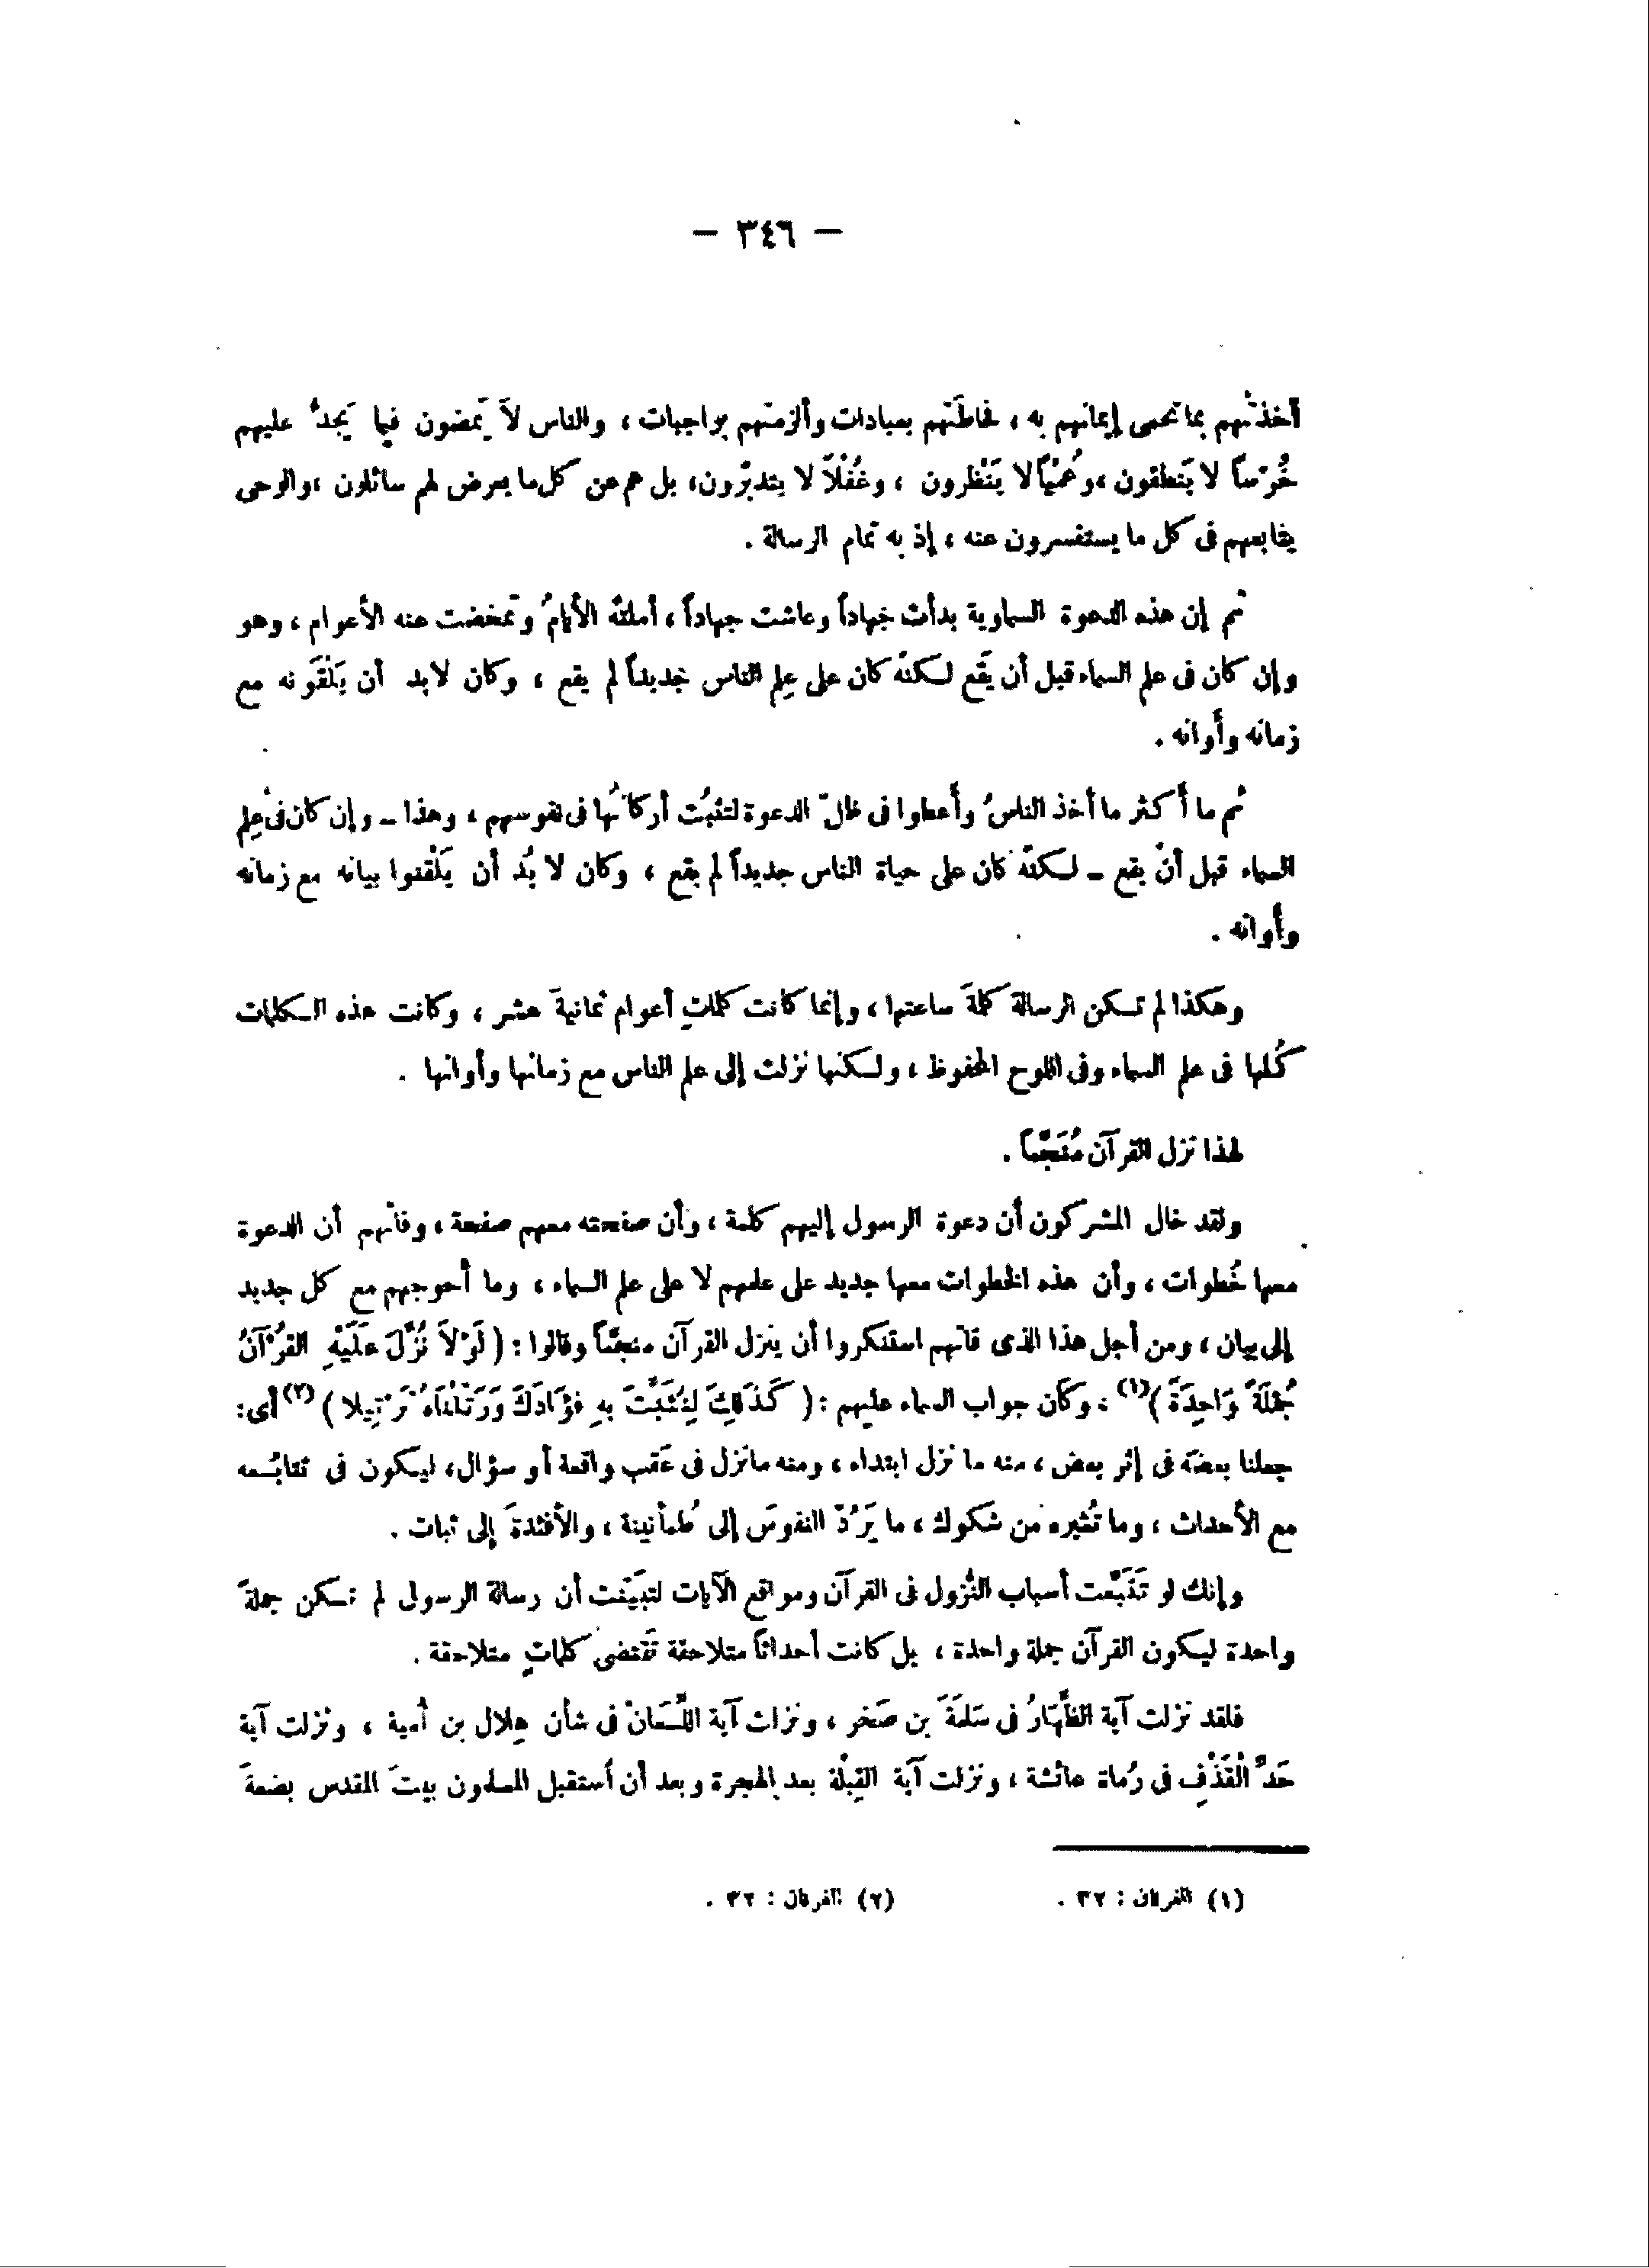 — ٣٤٦ —
أخذتْهم بما تحمى إيمانهم به ، فحاطَتهم بعبادات وألزمتهم بواجبات ، والناس لاَ يَمضون فيما يَجدُّ عليهم
خُرْساً لا يَنطقون ، وعُمْياً لا يَنْظرون ، وغُفْلاً لا يتدبّرون، بل هم عن كل ما يعرض لهم سائلون ، والوحى
يتابعهم فى كل ما يستفسرون عنه ، إذ به تمام الرسالة .
ثم إن هذه الدعوة السماوية بدأت جهاداً وعاشت جهاداً ، أملتْه الأيامُ وتمخضت عنه الأعوام ، وهو
وإن كان فى علم السماء قبل أن يَقَع لكنّه كان على عِلم الناس جديداً لم يقع ، وكان لابد أن يَلْقَونه مع
زمانه وأوانه .
ثم ما أكثر ما أخذ الناسُ وأعطوا فى ظلّ الدعوة لتثبُت أركانُها فى نفوسهم ، وهذا ــ وإن كان فى عِلم
السماء قبل أنْ يقع ــ لكنّه كان على حياة الناس جديداً لم يقع ، وكان لا بُد أن يَلْقَوا بيانه مع زمانه
وأوانه .
وهكذا لم تكن الرسالة كلمةَ ساعتها ، وإنما كانت كلماتِ أعوام ثمانيةَ عشر ، وكانت هذه الكلمات
كُلها فى علم السماء وفى اللوح المحفوظ ، ولكنها نزلت إلى علم الناس مع زمانها وأوانها .
لهذا نزل القرآن مُنَجَّماً .
ولقد خال المشركون أن دعوة الرسول إليهم كلمة ، وأن صفحته معهم صفحة ، وفاتهم أن الدعوة
معها خُطوات ، وأن هذه الخطوات معها جديد على علمهم لا على علم السماء ، وما أحوجهم مع كل جديد
إلى بيان ، ومن أجل هذا الذى فاتهم استنكروا أن ينزل القرآن منجّماً وقالوا : ( لَوْلاَ نُزِّلَ عَلَيْهِ القُرْآنُ
جُمْلَةً وَاحِدَةً )(١) . وكان جواب السماء عليهم : ( كَذَلِكَ لِنُثَبِّتَ بِهِ فؤادَكَ وَرَتَّلْنَاهُ تَرْتِيلا )(٢) أى :
جعلنا بعضَه فى إثر بعض ، منه ما نزل ابتداء ، ومنه ما نزل فى عَقب واقعة أو سؤال، ليكون فى تتابُعه
مع الأحداث ، وما تُثيره من شكوك ، ما يَرُدّ النفوسَ إلى طُمأنينة ، والأفئدةَ إلى ثبات .
وإنك لو تَتَبَّعت أسباب النُّزول فى القرآن ومواقع الآيات لتبيّنت أن رسالة الرسول لم تكن جملةً
واحدة ليكون القرآن جملة واحدة ، بل كانت أحداثاً متلاحقة تَقتضى كلماتٍ متلاحقة .
فلقد نزلت آية الظِّهَارُ فى سَلمَةَ بن صَخر ، ونزلت آية اللِّعَان فى شأن هِلال بن أمية ، ونزلت آية
حَدِّ الْقَذْفِ فى رُماة عائشة ، ونزلت آية القِبلْة بعد الهجرة وبعد أن استقبل المسلمون بيتَ المقدس بضعةَ
(١) الفرقان : ٣٢ .
(٢) الفرقان : ٣٢ .